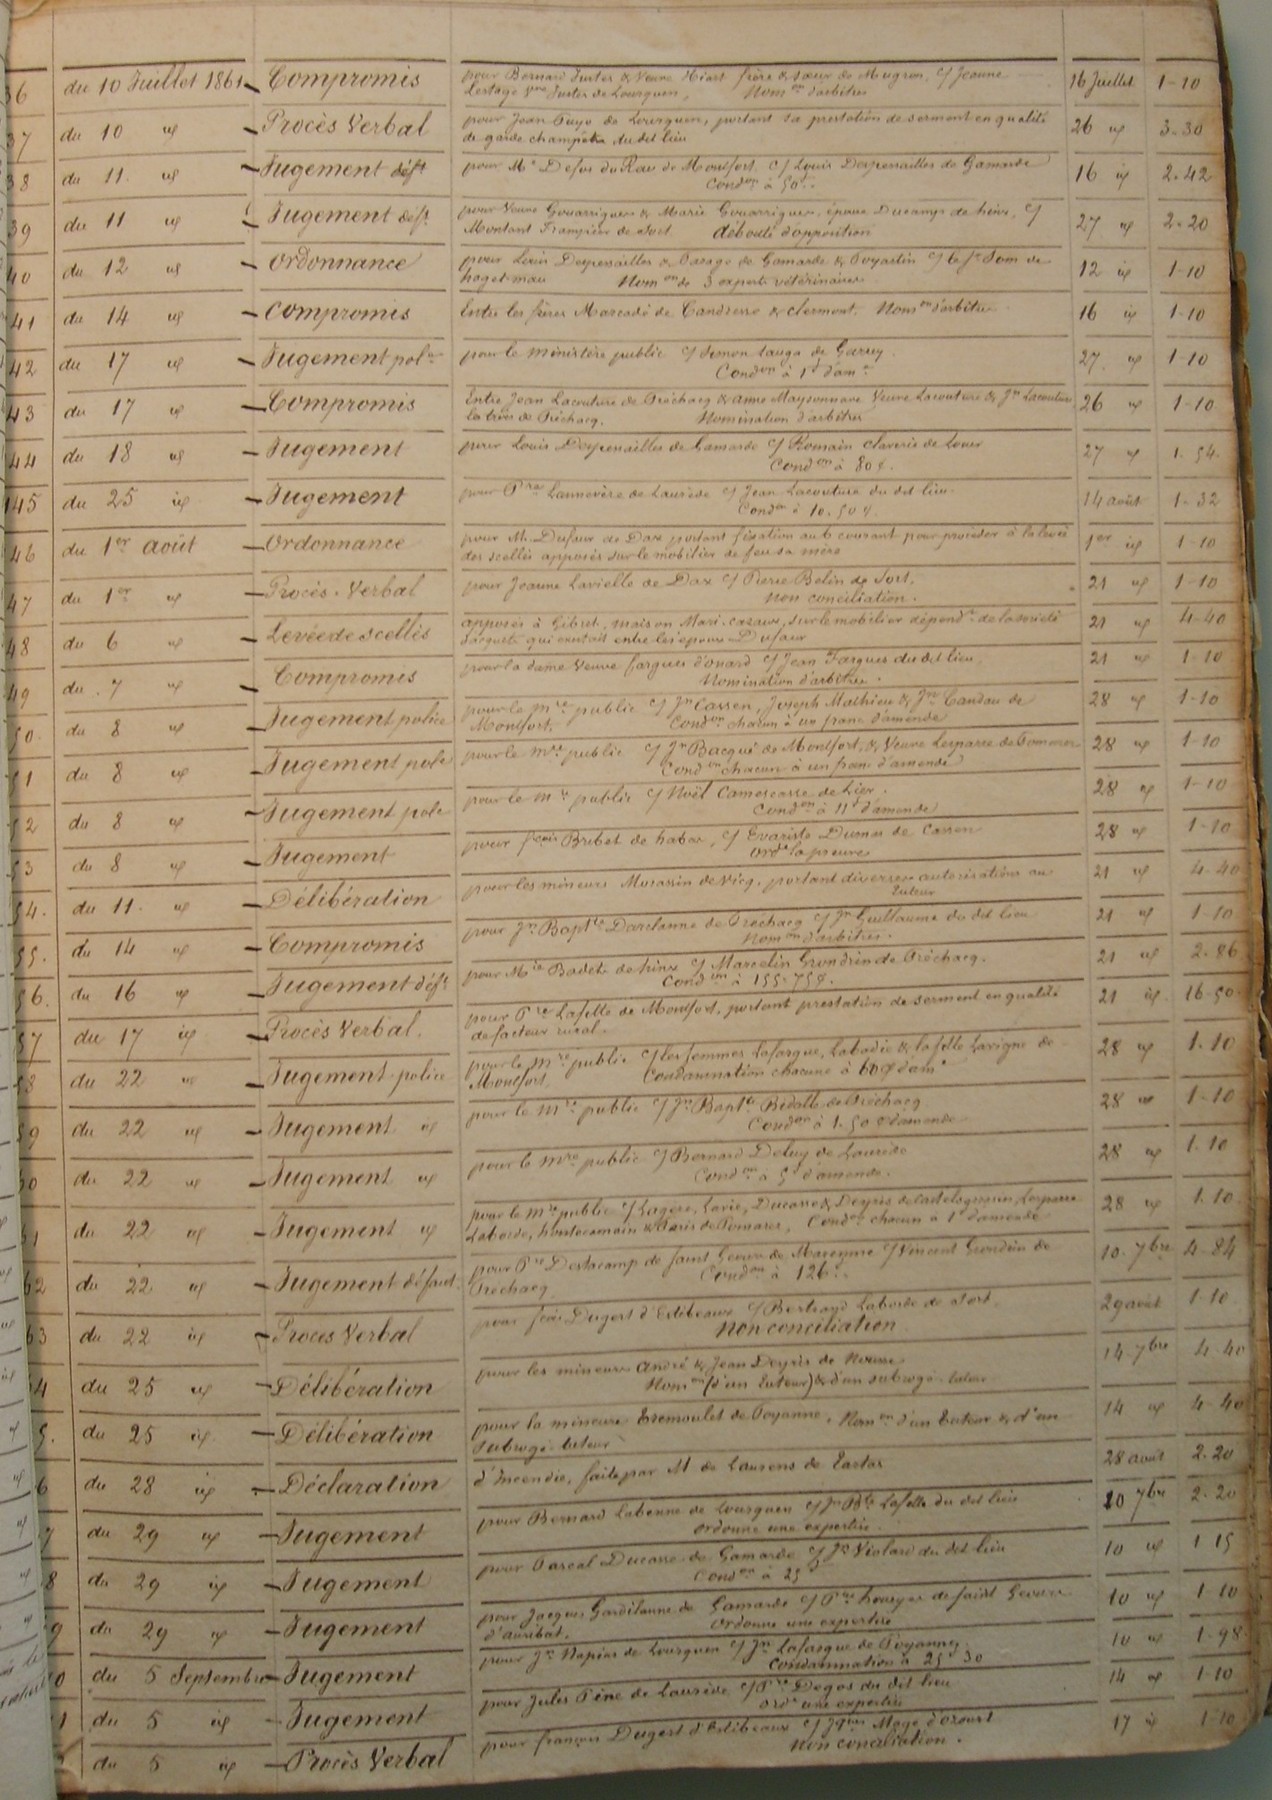 36 du 10 Juillet 1861 Compromis pour Bernard Justes & Veuve Hiart frère & sœur de Mugron, c/ Jeanne 16 Juillet 1-10
Lestage Vve Justes de Lourquen, Nomon d'arbitres
37 du 10 id Procès Verbal pour Jean Puyo de Lourquen, portant sa prestation de serment en qualité 26 id 3-30
de garde champêtre du dit lieu
38 du 11 id Jugement déft pour Me Defos du Rau de Montfort c/ Louis Despersailles de Gamarde 16 id 2-42
Condon à 50f
39 du 11 id Jugement déft pour Veuve Gouarrigues & Marie Gouarrigues, épouse Ducamp de hinx, c/ 27 id 2-20
Montant de Sort débouté d'opposition
40 du 12 id Ordonnance pour Louis Despersailles & de Gamarde & Poyartin c/ le sr Dom de 12 id 1-10
haget-mau Nomon de 3 experts vétérinaires
41 du 14 id Compromis Entre les frères Marcadé de Candresse & clermont. Nomon d'arbitre 16 id 1-10
42 du 17 id Jugement polce pour le ministère public c/ Simon Lauga de Garrey 27 id 1-10
Condon à 1f d'amde
43 du 17 id Compromis Entre Jean Lacouture de Préchacq & anne Maysonnave Veuve Lacouture & Jn Lacouture 26 id 1-10
de Préchacq. Nomination d'arbitres
44 du 18 id Jugement pour Louis Despersailles de Gamarde c/ Romain claverie de Louer 27 id 1-54
Condon à 80f.
145 du 25 id Jugement pour Pre Lannevère de Laurède c/ Jean Lacouture du dit lieu 14 août 1-32
Condon à 10.50f.
46 du 1er août Ordonnance pour M. Dufaur de Dax portant fixation au 6 courant pour procéder à la levée 1er id 1-10
des scellés apposés sur le mobilier de feu sa mère
47 du 1er id Procès-Verbal pour Jeanne Lavielle de Dax c/ Pierre Belin de Sort. 21 id 1-10
non conciliation.
48 du 6 id Levée de scellés apposés à Gibret, maison Mari-cazaux, sur le mobilier dépendt de la société 21 id 4-40
d'acquêts qui existait entre les époux Dufaur
49 du 7 id Compromis pour la dame Veuve fargues d'onard c/ Jean Fargues du dit lieu. 21 id 1-10
Nomination d'arbitre.
50. du 8 id Jugement police pour le mre public c/ Jn Cassen, Joseph Mathieu & Jn Candau de 28 id 1-10
Montfort. Condon chacun à un franc d'amende
51 du 8 id Jugement polce pour le mre public c/ Jn Bacqué de Montfort, & Veuve Lesparre de Pomarez 28 id 1-10
Condon chacun à un franc d'amende
52 du 8 id Jugement polce pour le mre public c/ Noël Camescasse de Lier. 28 id 1-10
Condon à 11f d'amende
53 du 8 id Jugement pour fçois Bribet de habas, c/ Evariste Dumas de Cassen 28 id 1-10
ordne la preuve
54. du 11 id Délibération pour les mineurs Morassin de Vicq, portant diverses autorisations au 21 id 4-40
tuteur
55. du 14 id Compromis pour Jn Bapte Darclanne de Préchacq c/ Jn Guillaume du dit lieu 21 id 1-10
Nomon d'arbitres.
56. du 16 id Jugement déft pour Mie Badets de hinx c/ Marcelin Grondin de Préchacq. 21 id 2-86
Condon à 155.75f.
57 du 17 id Procès Verbal. pour Pre Lafitte de Montfort, portant prestation de serment en qualité 21 id 16-50
de facteur rural.
58 du 22 id Jugement-police pour le Mre public c/ les femmes Lafargue, Labadie & la fille Lavigne de 28 id 1-10
Montfort Condamnation chacune à d'amde
59 du 22 id Jugement id pour le Mre public c/ Jn Bapte Bidalle de Préchacq 28 id 1-10
Condon à 1.50 d'amende
60 du 22 id Jugement id pour le Mre public c/ Bernard Deluy de Laurède 28 id 1-10
Condon à 5f d'amende.
61 du 22 id Jugement id pour le Mre public c/ Lagère, Lavie, Ducasse & Deyris Lesparre 28 id 1-10
Laborde, & Paris de Pomarez, Condon chacun à 1f d'amende
62 du 22 id Jugement défaut pour Pre Destacamp de Saint Geours de Maremne c/ Vincent Grondin de 10-7bre 4-84
Préchacq Condon à 126f
63 du 22 id Procès Verbal pour fçois Dugert d'Estibeaux c/ Bertrand Laborde de Sort 29 août 1-10
Non conciliation
64 du 25 id Délibération pour les mineurs André & Jean Deyris de Nousse 14-7bre 4-40
Nomon (d'un tuteur) & d'un subrogé-tuteur
65. du 25 id Délibération pour la mineure Tremoulet de Poyanne, Nomon d'un tuteur & d'un 14 id 4-40
subrogé-tuteur
66 du 28 id Déclaration d'Incendie, faite par M de Laurens de Tartas 28 août 2-20
67 du 29 id Jugement pour Bernard Labenne de Lourquen c/ Jn Bte Lafitte du dit lieu 10 7bre 2-20
ordonne une expertise.
68 du 29 id Jugement pour Pascal Ducasse de Gamarde c/ Jn Violard du dit lieu 10 id 1-15
Condon à 25f
69 du 29 id Jugement pour Jacques Gardilanne de Gamarde c/ Pre houeyes de Saint Geours 10 id 1-10
d'auribat. Ordonne une expertise
70 du 5 Septembre Jugement pour Jn Napias de Lourquen c/ Jn Lafargue de Poyanne 10 id 1-98
Condamnation à 25f 30
71 du 5 id Jugement pour Jules Pine de Laurède c/ Pre Degos du dit lieu 14 id 1-10
ordne une expertise
72 du 5 id Procès Verbal pour françois Dugert d'Estibeaux c/ Jques Maye d'ozourt 17 id 1-10
non conciliation.